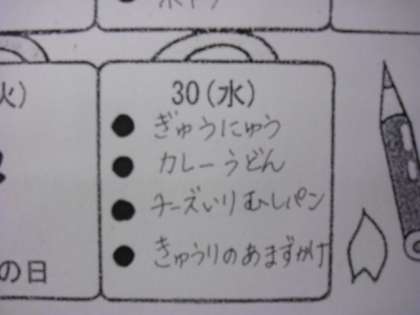 火)
30(水)
ぎゅうにゅう
カレーうどん
チーズいりむしパン
きゅうりのあまずづけ
の日